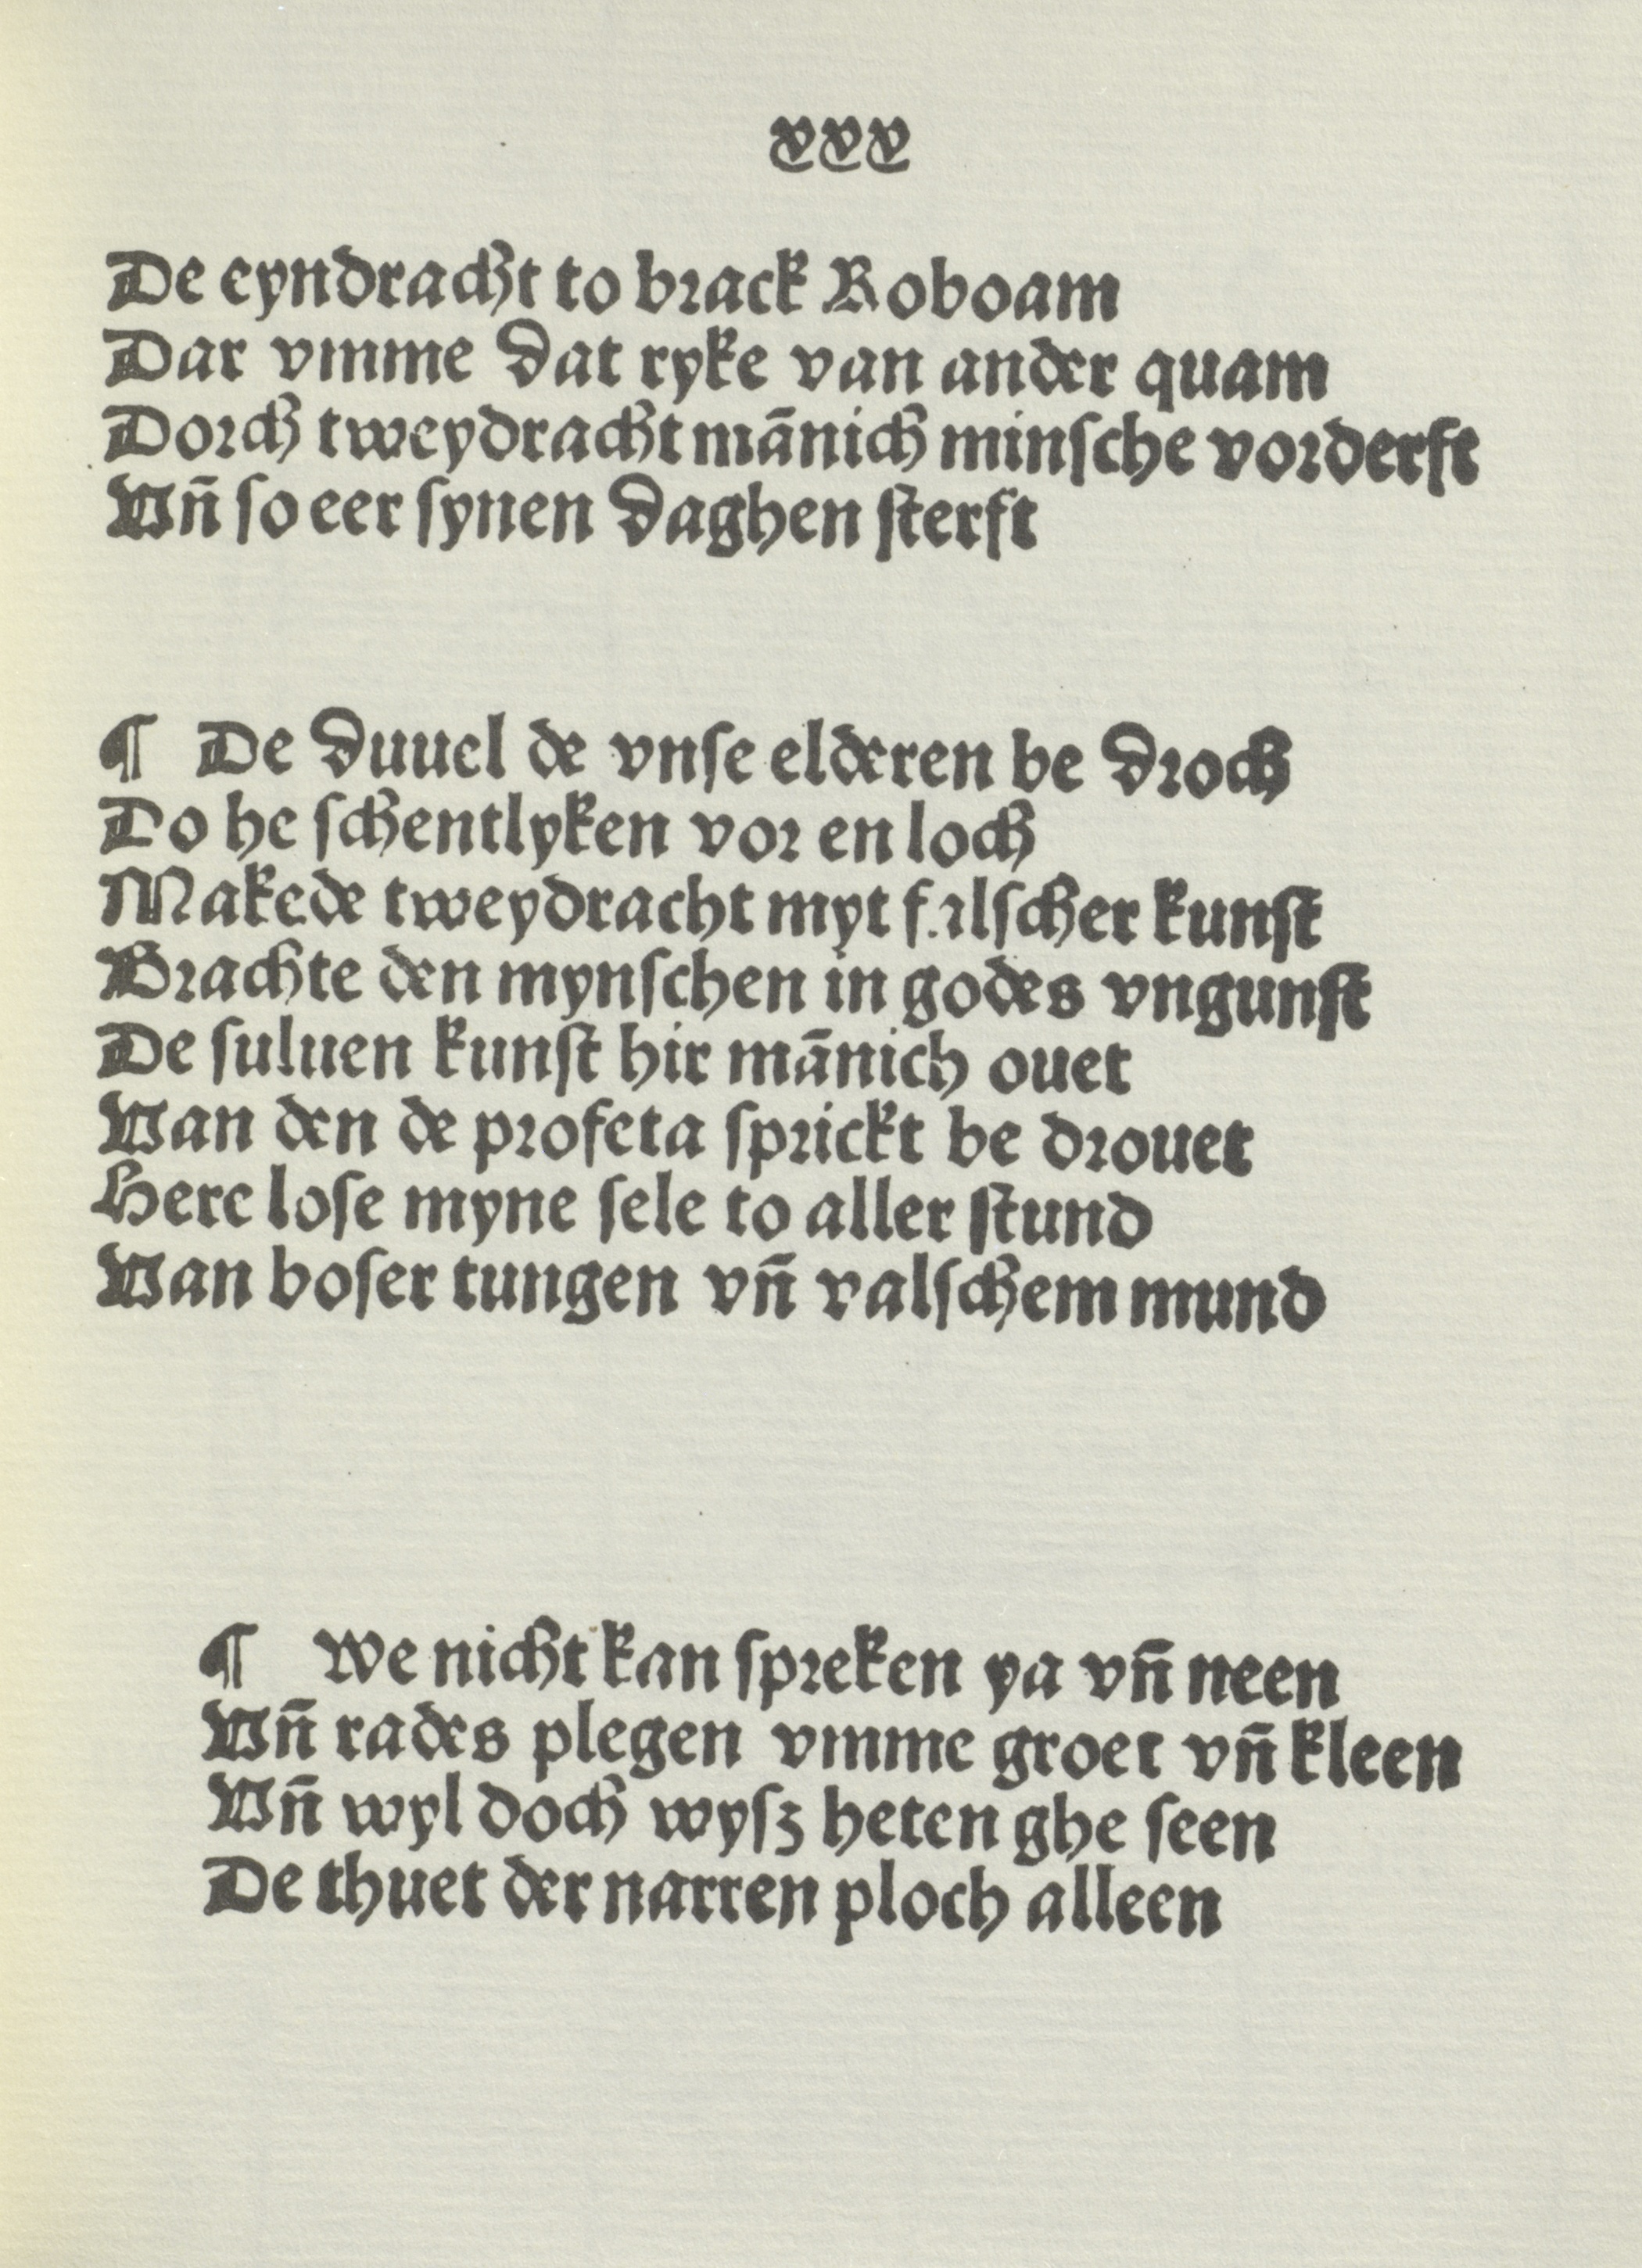 xxx
De eyndracht to brack Roboam
Dar vmme dat ryke van ander quam
Dorch tweydracht mānich minsche vorderft
Vn̄ so eer synen daghen sterft
¶ De duuel de vnse elderen be droch
Do he schentlyken vor en loch
Makede tweydracht myt falscher kunst
Brachte den mynschen in godes vngunst
De suluen kunst hir mānich ouet
Van den de profeta sprickt be drouet
Here lose myne sele to aller stund
Van boser tungen vn̄ valschem mund
¶ We nicht kan spreken ya vn̄ neen
Vn̄ rades plegen vmme groet vn̄ kleen
Vn̄ wyl doch wysz heten ghe seen
De thuet der narren ploch alleen